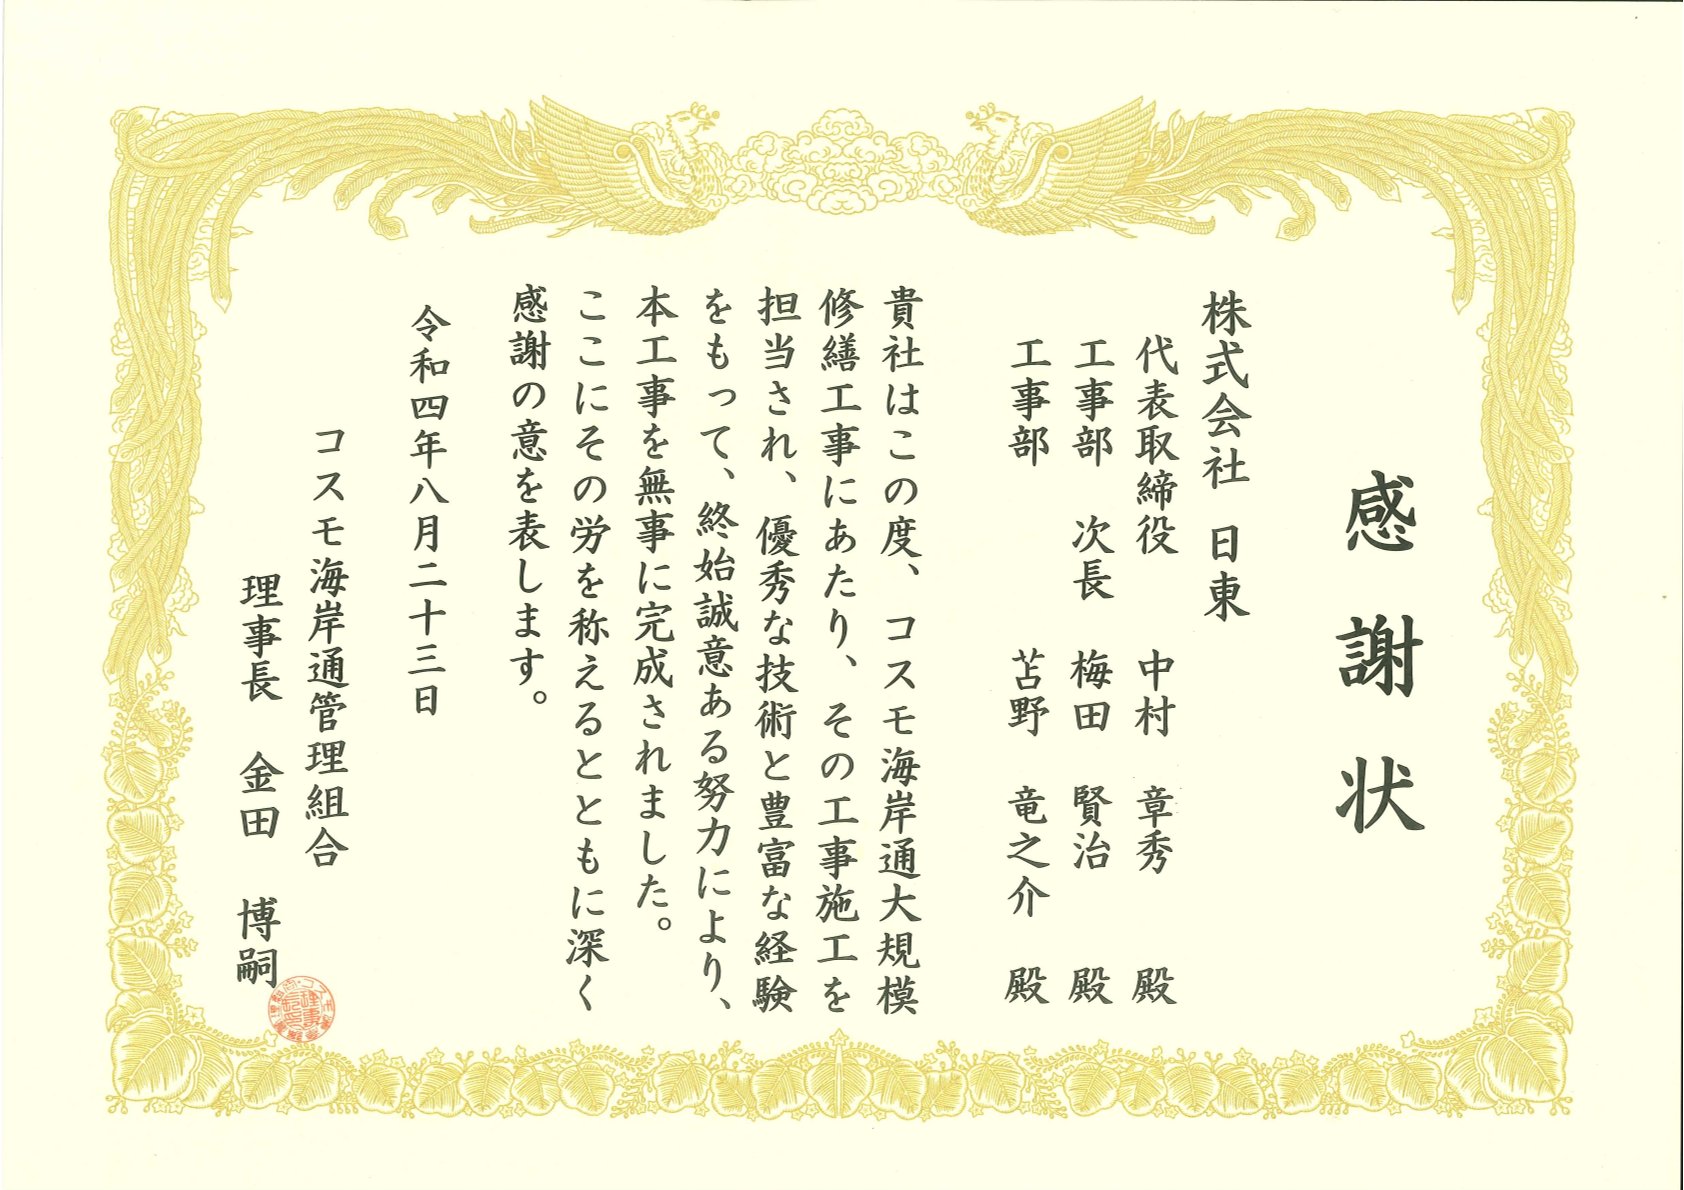 感謝状
株式会社 日東
代表取締役 中村 章秀 殿
工事部 次長 梅田 賢治 殿
工事部 苫野 竜之介 殿
貴社はこの度、コスモ海岸通大規模
修繕工事にあたり、その工事施工を
担当され、優秀な技術と豊富な経験
をもって、終始誠意ある努力により、
本工事を無事に完成されました。
ここにその労を称えるとともに深く
感謝の意を表します。
令和四年八月二十三日
コスモ海岸通管理組合
理事長 金田 博嗣